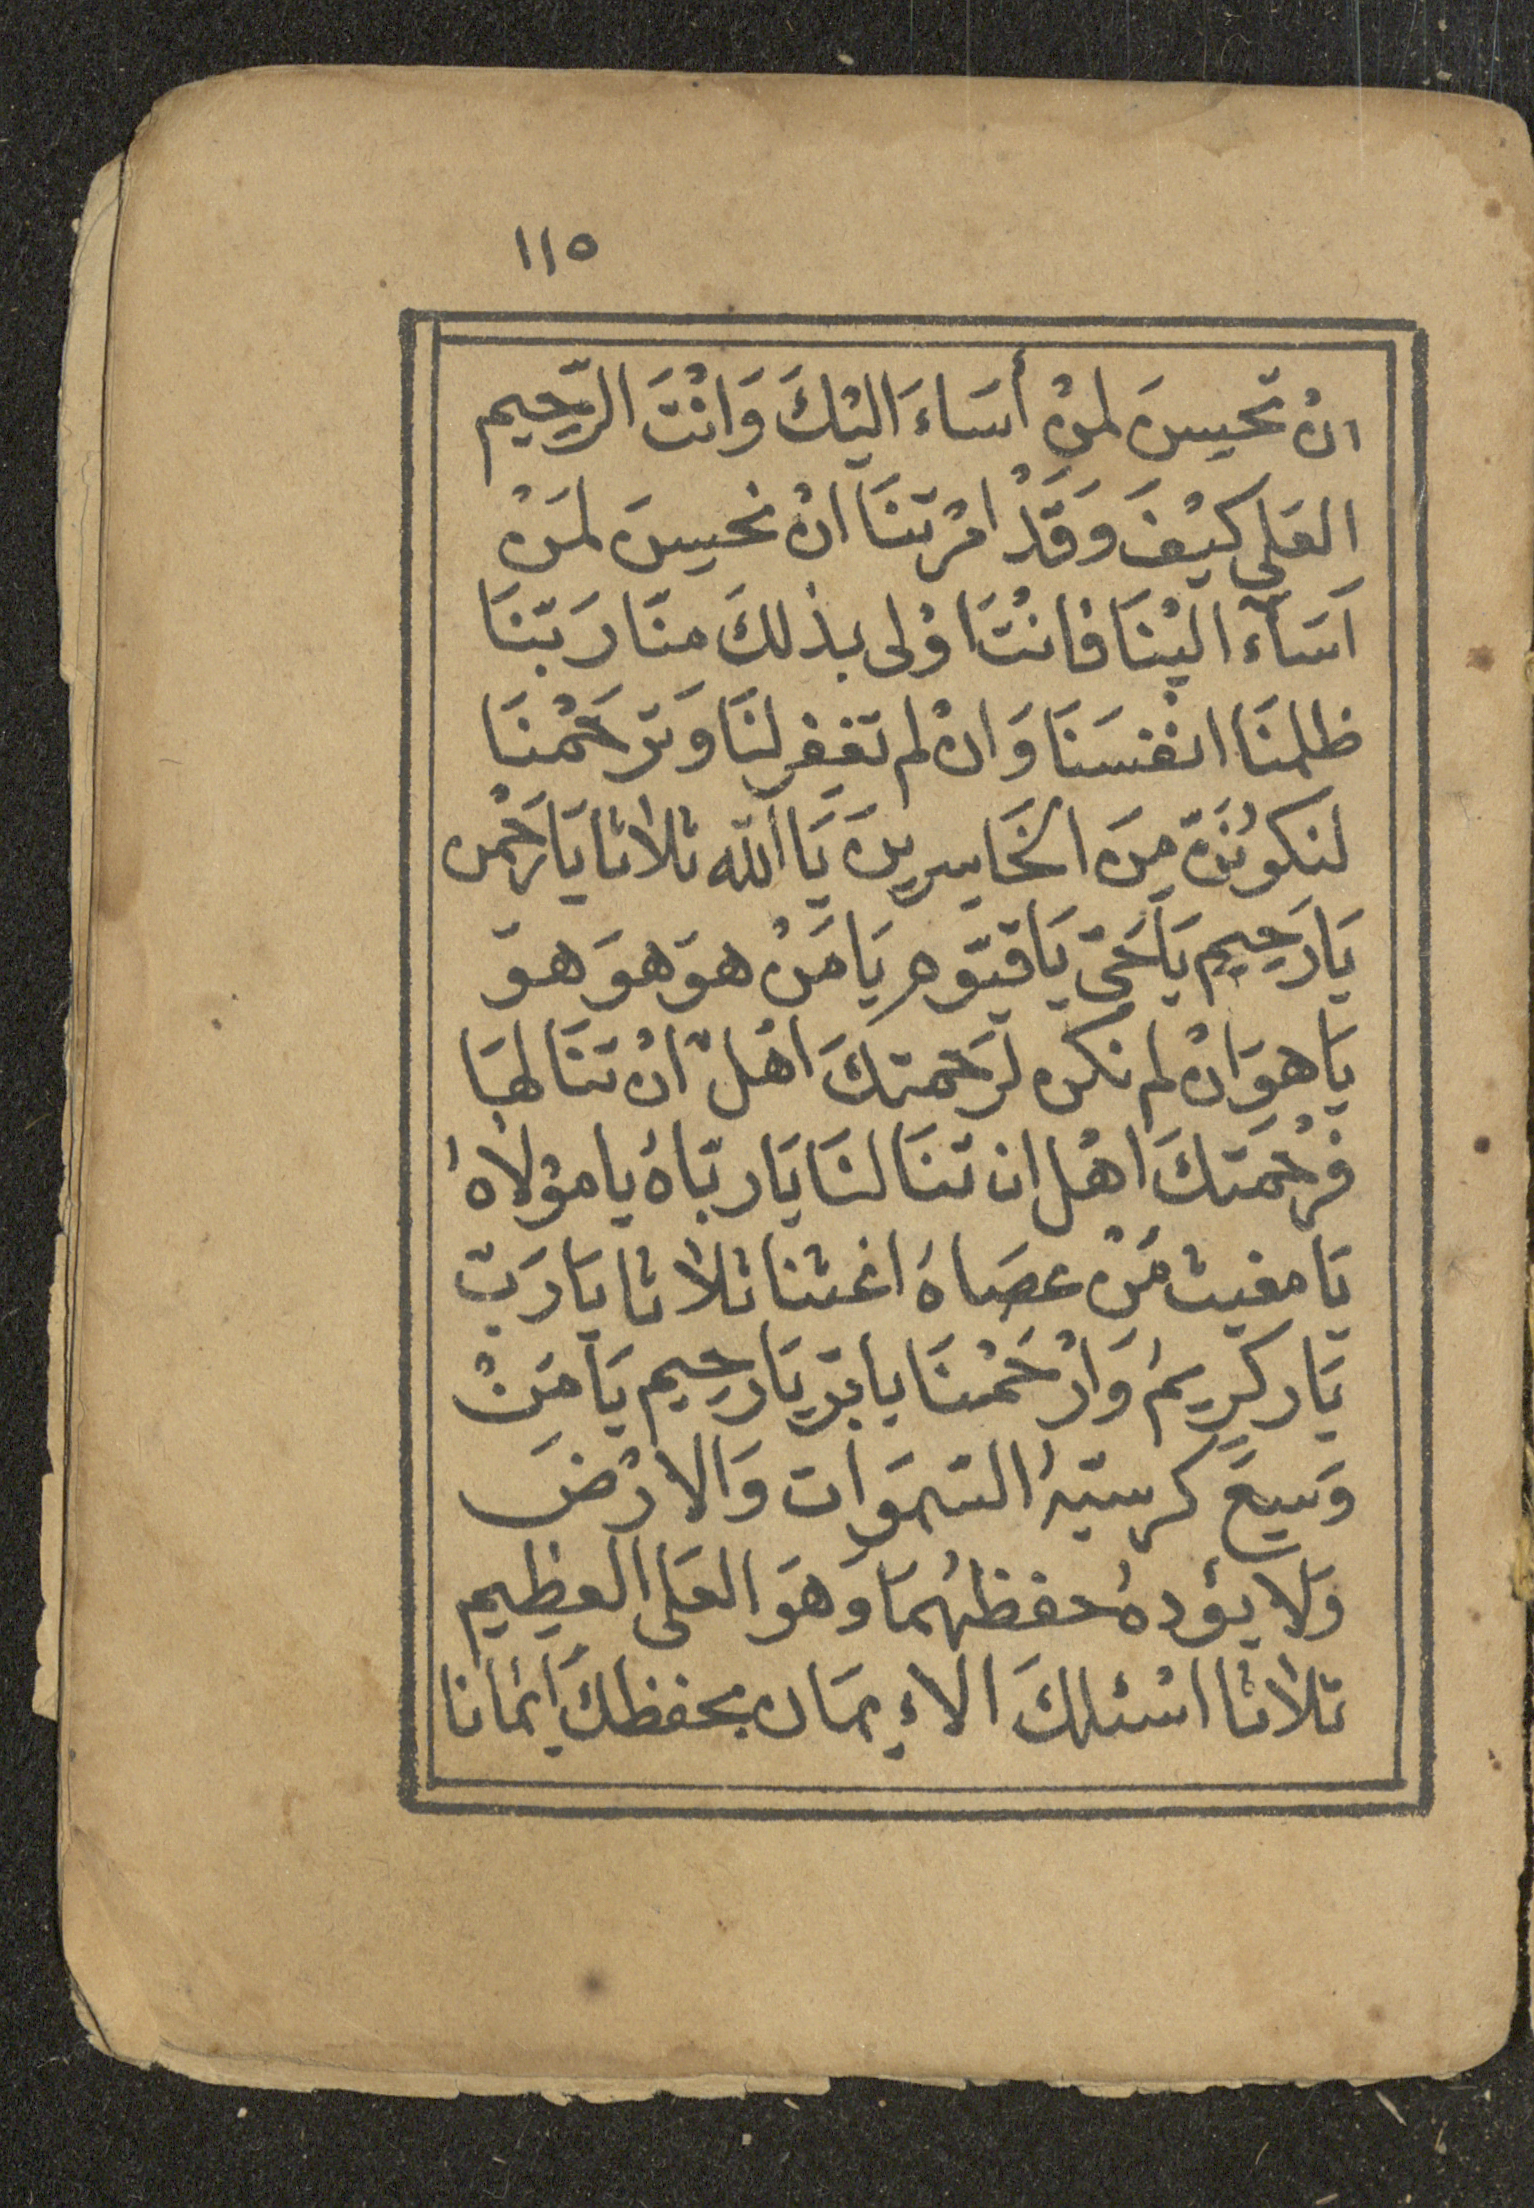 ١١٥
انْ تحسِنَ لمنْ أسَاءَ اليْكَ وَانْتَ الرّحِيم
العَلى كيْفَ وَقَدْ امْرتنَا انْ نحسِنَ لمَنْ
اَسَاءَ اليْنَا فانْتَ اوْلى بذلكَ منّا رَبّنَا
ظلمنَا انفسَنَا وَانْ لم تغفِر لنَا وَترحَمْنَا
لنكونُنّ مِنَ الخَاسِرِينَ يَا اَلله ثلاثا يَا رَحْمن
يَا رَحِيم يَا حَىّ يَا قيّوم يَا مَنْ هوَ هوَ هوَ
يَا هوَ انْ لم نكن لرَحمتكَ اهْلٌ انْ تنَالهَا
فرْحمَتكَ اهْل ان تنَالنَا يَا ربّاهُ يا موْلاهُ
يَا مغيث مَنْ عصَاهُ اغثنا ثلاثا يَا رَبّ
يَار كرِيمُ وَارْحَمْنَا يا بَرّ يَا رحِيم يَا مَنْ
وَسِيعَ كرسيّهُ السّموَات وَالارْضَ
وَلا يؤدهُ حفظهُمَا وَهوَ العَلى العظِيم
ثلاثا اسْئلكَ الاءِيمَان بحفظكَ اِيْمَانا